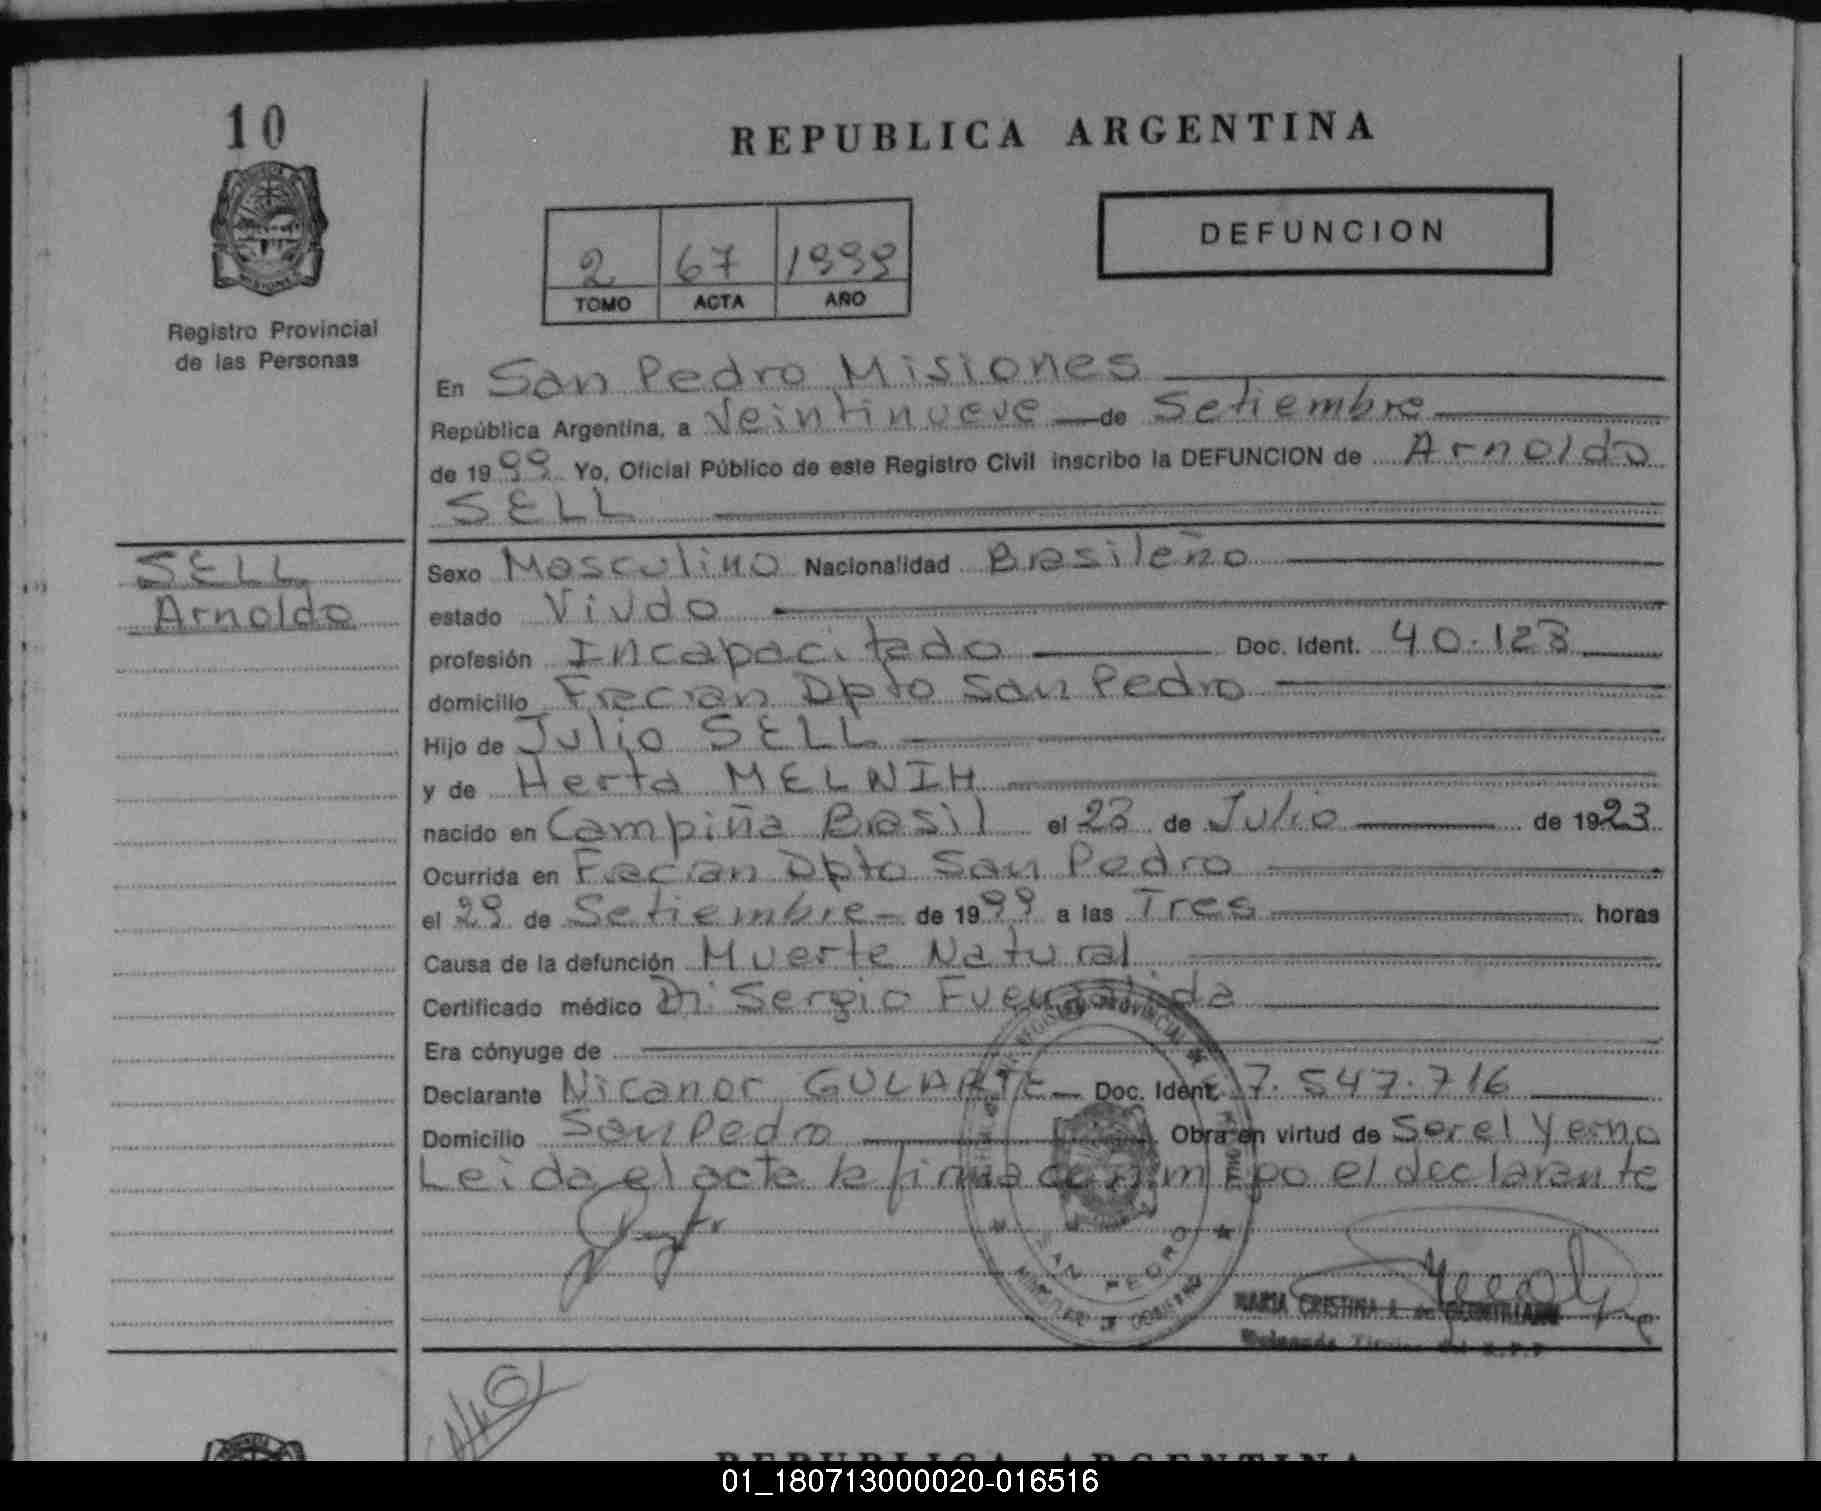 10
REPUBLICA ARGENTINA
DEFUNCION
2 67 1999
TOMO ACTA AÑO
Registro Provincial
de las Personas
En San Pedro Misiones
República Argentina, a Veintinueve de Setiembre
de 1999 Yo, Oficial Público de este Registro Civil inscribo la DEFUNCION de Arnoldo
SELL
SELL
Arnoldo
Sexo Masculino Nacionalidad Brasileño
estado Viudo
profesión Incapacitado Doc. Ident. 40.123
domicilio Fracran Dpto San Pedro
Hijo de Julio SELL
y de Herta MELNIH
nacido en Campiña Brasil el 23 de Julio de 1923
Ocurrida en Fracran Dpto San Pedro
el 29 de Setiembre de 1999 a las Tres horas
Causa de la defunción Muerte Natural
Certificado médico Dr. Sergio Fuenzalida
Era cónyuge de
Declarante Nicanor GULARTE Doc. Ident. 7.547.716
Domicilio San Pedro Obra en virtud de Ser el Yerno
Leida el acta la firma conmigo el declarante
SAN PEDRO
MINISTERIO DE GOBIERNO
MARIA CRISTINA
REPUBLICA ARGENTINA
01_180713000020-016516